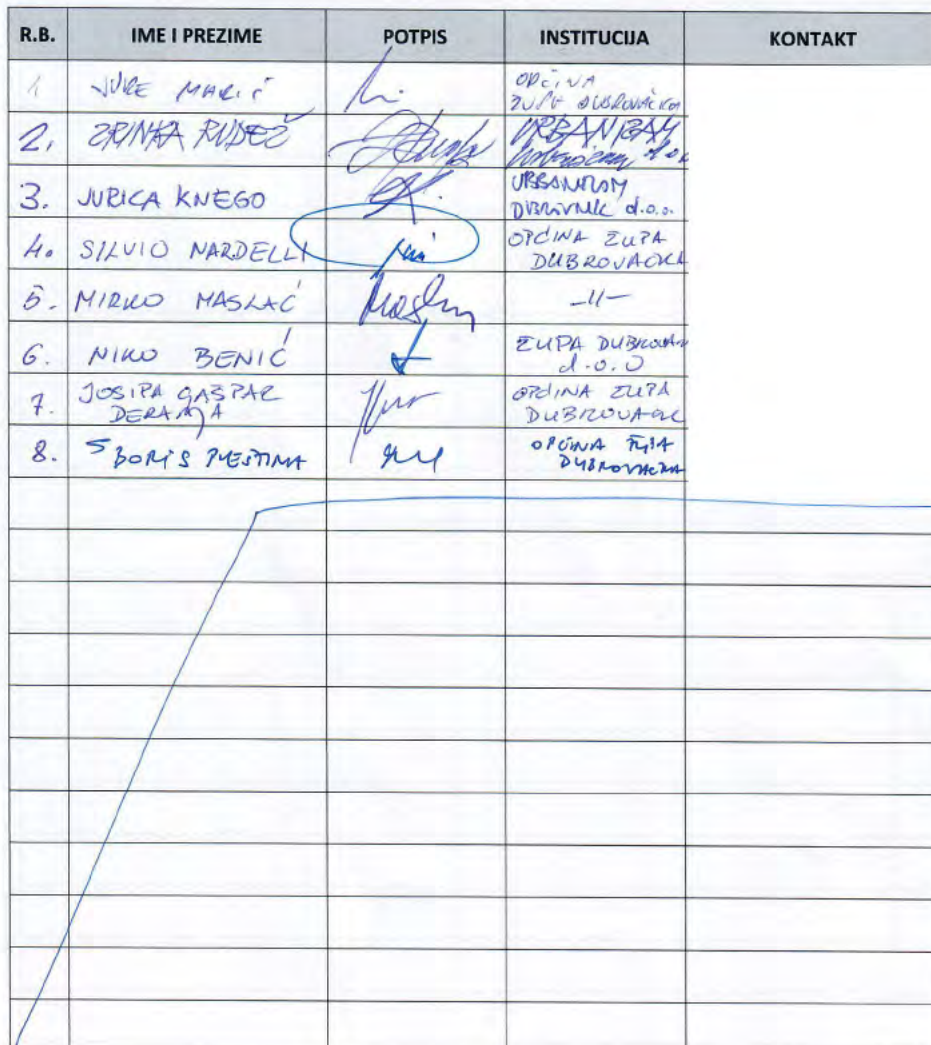 R.B. IME I PREZIME POTPIS INSTITUCIJA KONTAKT
1 JURE MARIĆ OPĆINA
ŽUPA DUBROVAČKA
2. ZRINKA RUDEŽ URBANIZAM
d.o.o.
3. JURICA KNEGO
DUBROVNIK d.o.o.
4. SILVIO NARDELLI OPĆINA ŽUPA
DUBROVAČKA
5. MIRKO MASLAĆ -||-
6. NIKO BENIĆ ŽUPA DUBROVAČKA
d.o.o
7. JOSIPA GAŠPAR OPĆINA ŽUPA
DUBROVAČK
8. BORIS PLEŠTINA OPĆINA ŽUPA
DUBROVAČKA